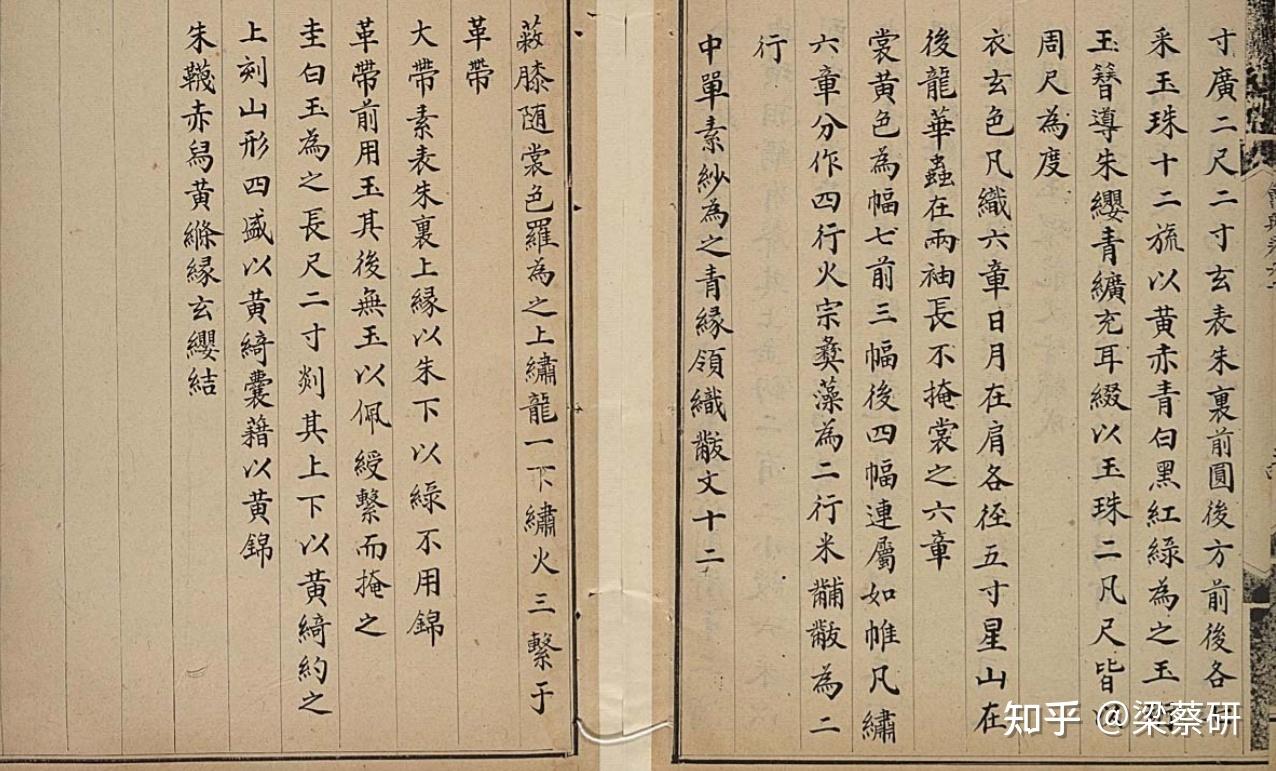 寸廣二尺二寸玄表朱裏前圓後方前後各七
采玉珠十二旒以黃赤青白黑紅綠為之玉珩
玉簪導朱纓青纊充耳綴以玉珠二凡尺皆以
周尺為度
衣玄色凡織六章日月在肩各徑五寸星山在
後龍華蟲在兩袖長不掩裳之六章
裳黃色為幅七前三幅後四幅連屬如帷凡繡
六章分作四行火宗彝藻為二行米黼黻為二
行
中單素紗為之青緣領織黻文十二
蔽膝随裳色羅為之上繡龍一下繡火三繫于
革帶
大帶素表朱裏上緣以朱下以綠不用錦
革帶前用玉其後無玉以佩綬繫而掩之
圭白玉為之長尺二寸剡其上下以黃綺約之
上刻山形四盛以黃綺囊藉以黃錦
朱韈赤舄黃絛緣玄纓結
知乎 @梁蔡研